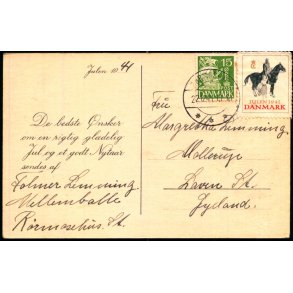 Julen 1944
De bedste Ønsker
om en rigtig glædelig
Jul og et godt Nytaar
sendes af
Folmer Lemming
Mellemballe
Kørmosehus. St.
15
DANMARK
JULEN 1941
DANMARK
Frk
Margrethe Lemming
Mollerup
Laven St.
Jylland.